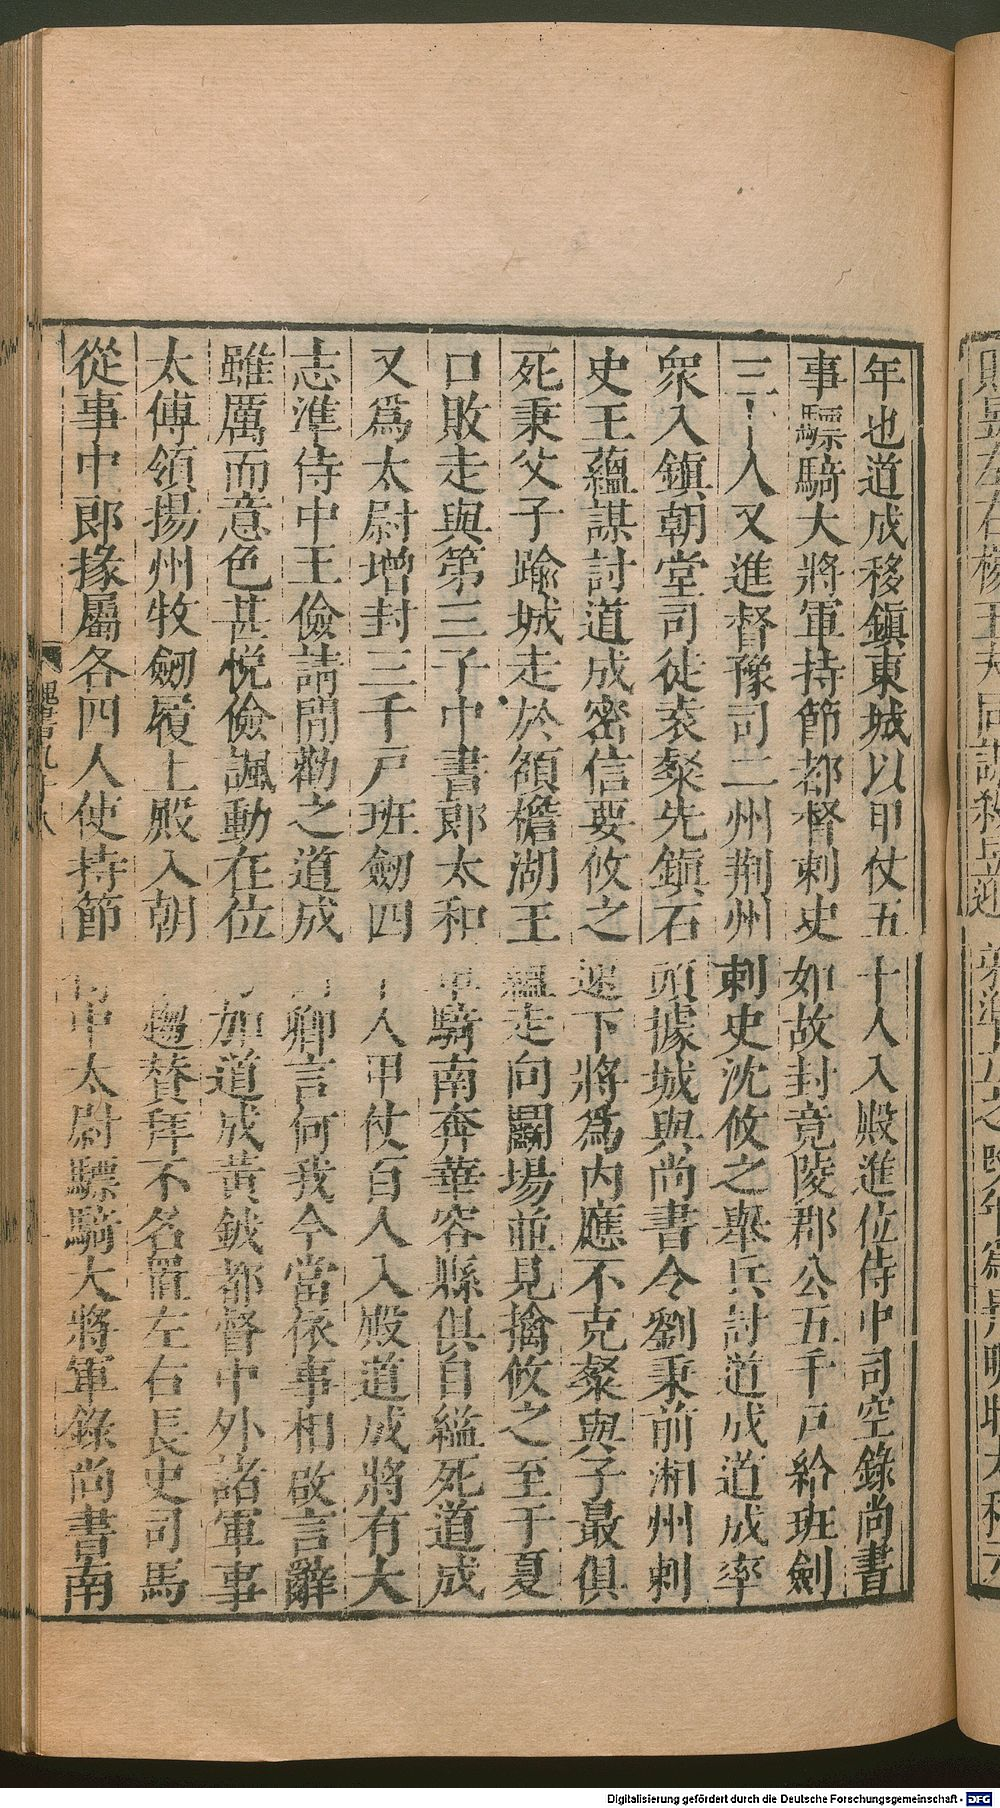 年也道成移鎮東城以甲仗五十人入殿進位侍中司空錄尚書
事驃騎大將軍持節都督刺史如故封竟陵郡公五千戶給班劍
三十人又進督豫司二州荆州刺史沈攸之舉兵討道成道成率
衆入鎮朝堂司徒袁粲先鎮石頭據城與尚書令劉秉前湘州刺
史王蘊謀討道成密信要攸之速下將爲内應不克粲與子最俱
死秉父子踰城走於額檐湖王蘊走向鬭場並見擒攸之至于夏
口敗走與第三子中書郎太和單騎南奔華容縣俱自縊死道成
又爲太尉增封三千戶班劒四十人甲仗百人入殿道成將有大
志準侍中王儉請間勸之道成 卿言何我今當依事相啟言辭
雖厲而意色甚悦儉諷動在位 加道成黃鉞都督中外諸軍事
太傅領揚州牧劒履上殿入朝 趨贊拜不名置左右長史司馬
從事中郎掾屬各四人使持節 中太尉驃騎大將軍錄尚書南
魏書九十八
Digitalisierung gefördert durch die Deutsche Forschungsgemeinschaft - DFG